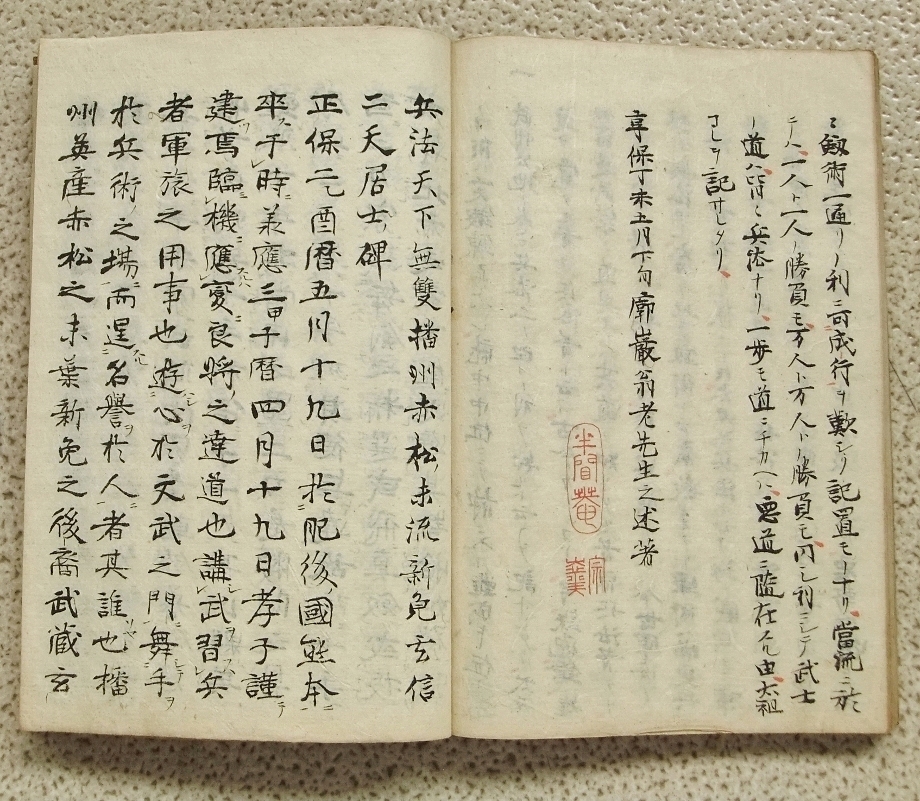 劔術一通リノ利ニ而成行ヲ歎シク記置モノナリ當流ニ於
テハ一人ト一人ノ勝負モ万人ト万人ト勝負モ同シ利ニシテ武士
ノ道ハ皆兵法ナリ一歩モ道ニチカヘハ悪道ニ陥在ル由太祖
コレヲ記サレタリ
享保丁未五月下旬廓巖翁老先生之述著
半間菴
兵法天下無雙播州赤松末流新免玄信
二天居士碑
正保二乙酉暦五月十九日於肥後國熊本
卒于時義應三甲子暦四月十九日孝子謹
建焉臨機應変良將之達道也講武習兵
者軍旅之用事也遊心於文武之門舞手
於兵術之場而逞名譽於人者其誰也播
州英産赤松之末葉新免之後裔武蔵玄